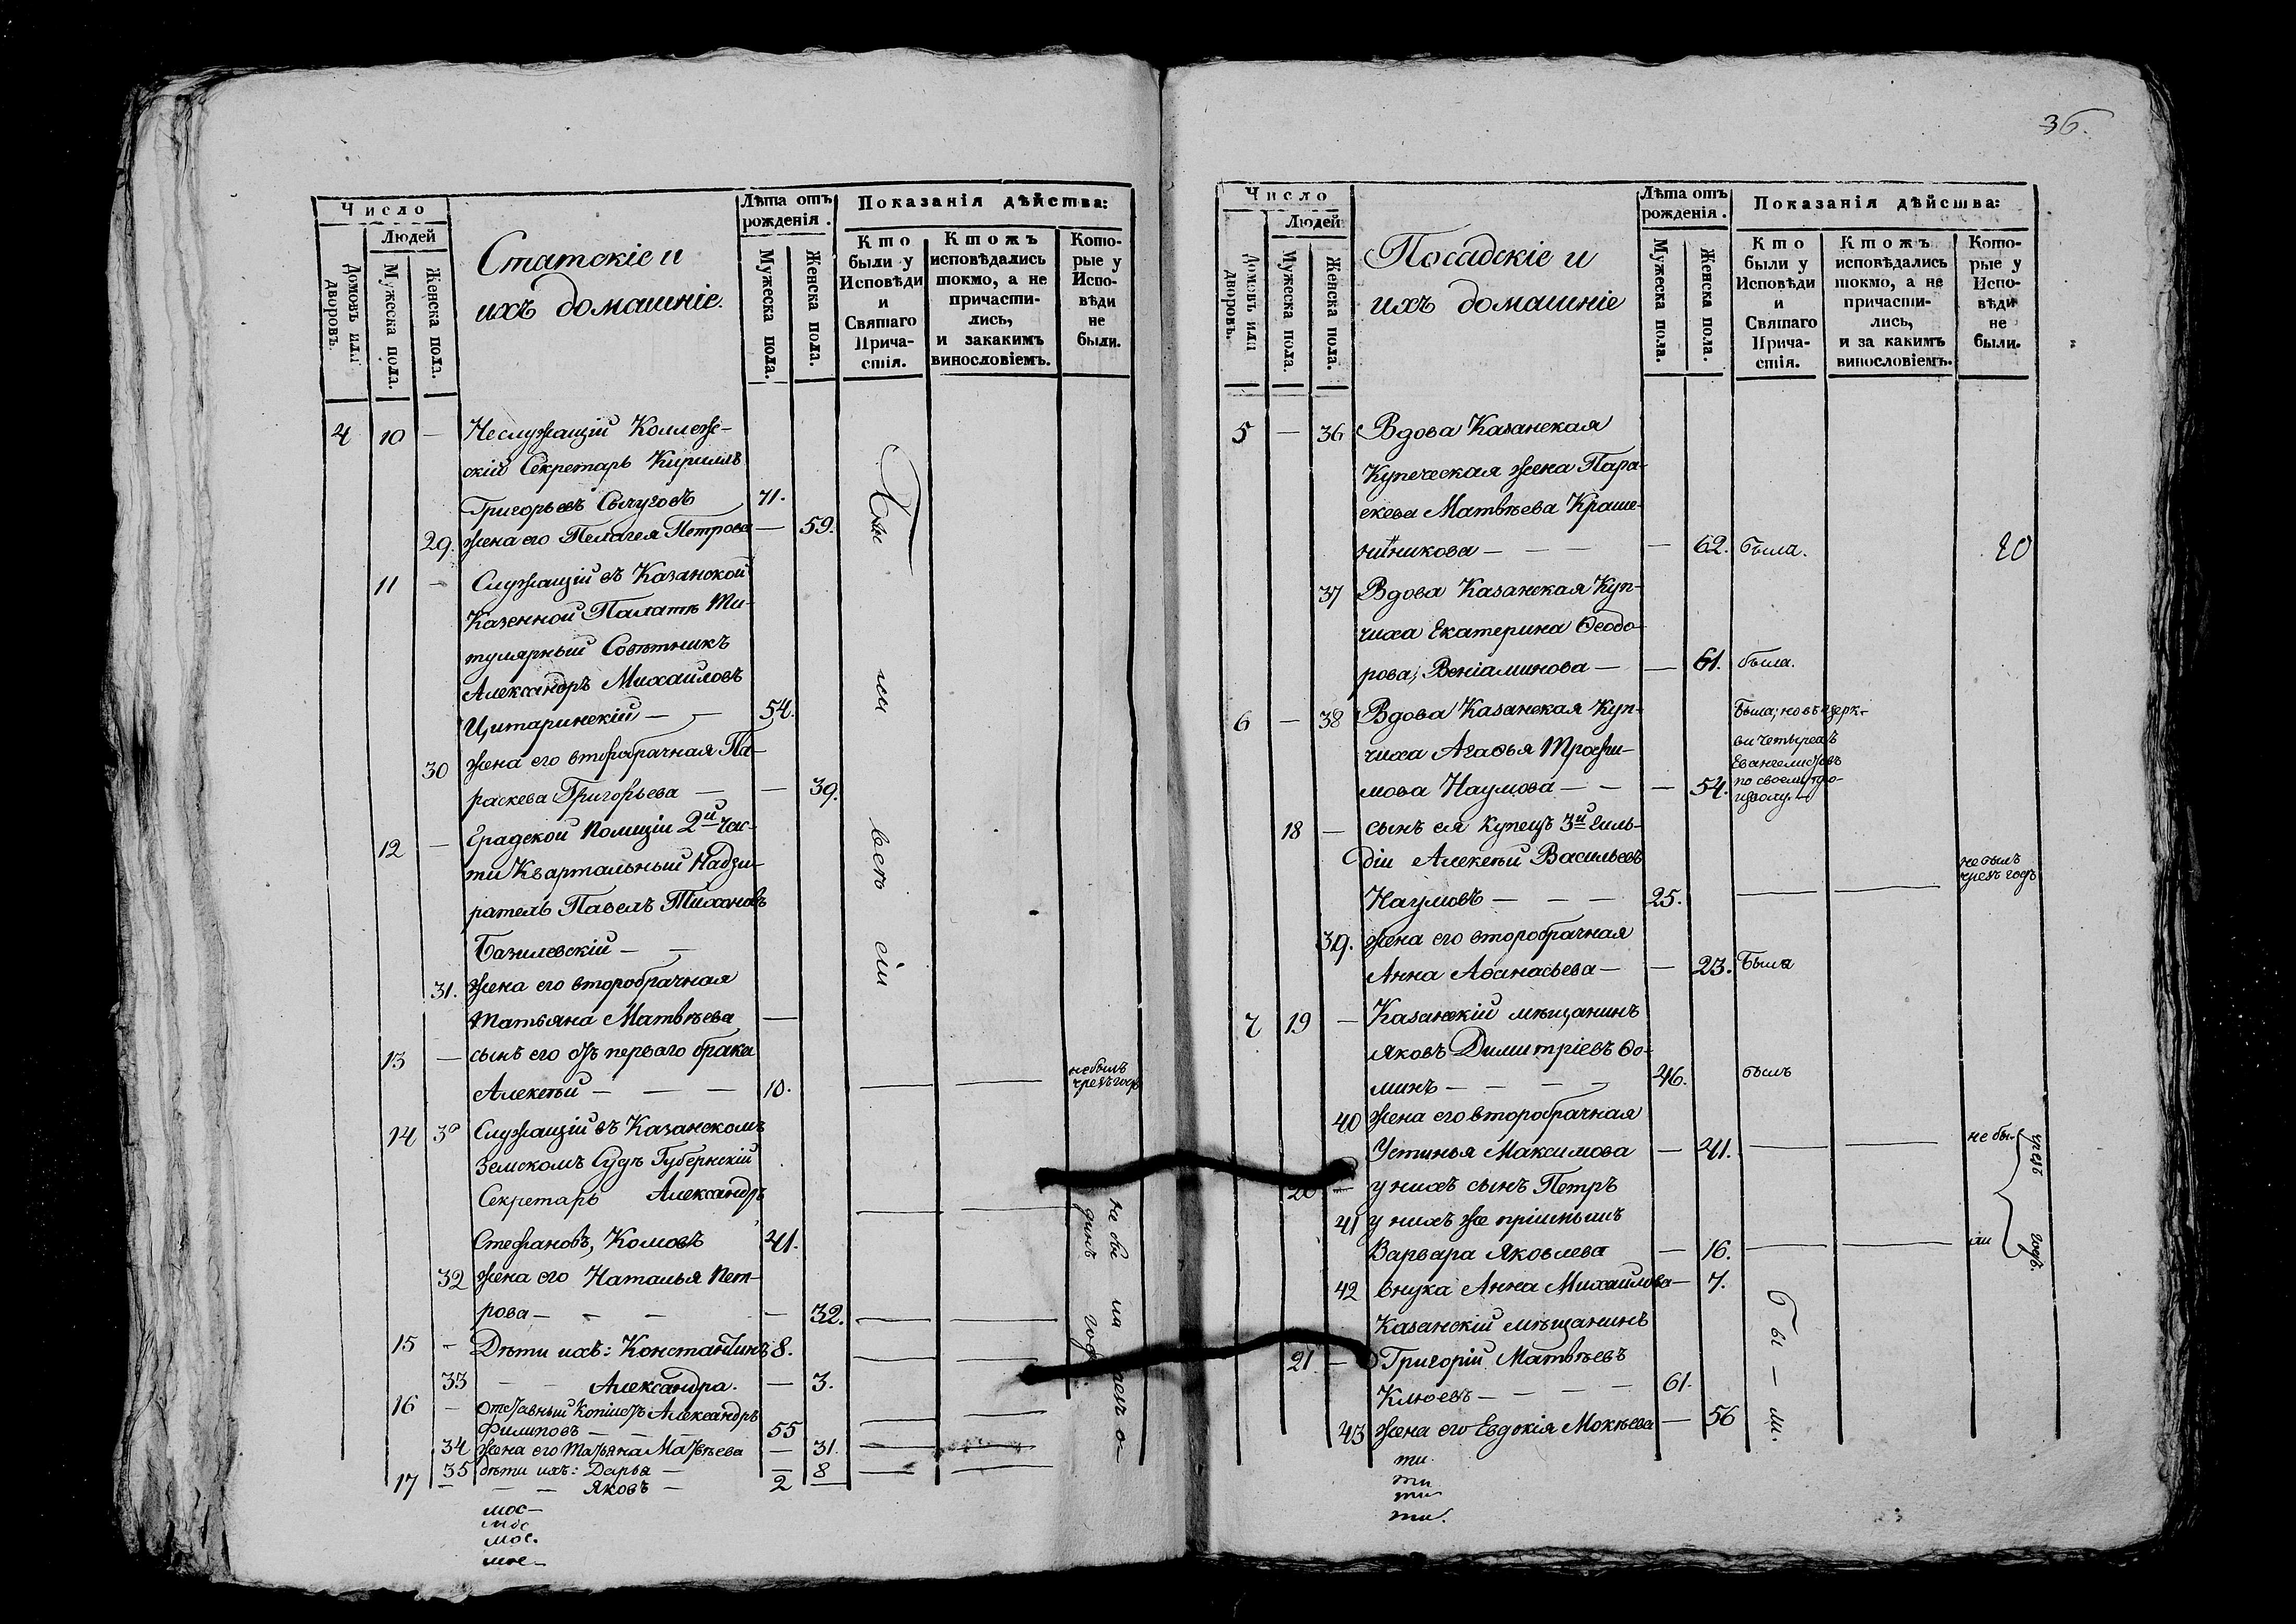 Число
Людей
Домовъ или дворовъ.
Мужеска пола.
Женска пола.
Статскіе и
ихъ домашніе.
Лѣта отъ
рожденія.
Мужеска пола.
Женска пола.
Показанія дѣйства:
Кто были у Исповѣди и Святаго Прича-стія.
Ктожъ исповѣдались токмо, а не причасти-лись, и закакимъ винословіемъ.
Кото-рые у Испо-вѣди не были.
4 10 — Неслужащій Коллеж-
скій Секретарь Кириллъ
Григорьевъ Сычуговъ 71.
29. жена его Пелагея Петрова — 59.
11 — Служащій въ Казанской
Казенной Палатѣ Ти-
тулярный Совѣтникъ
Александръ Михаиловъ
Цитаринскій — — 54.
30 жена его второбрачная Па-
раскева Григорьева — — 39.
12 — Градской Полиціи 2й Час-
ти Квартальный Надзи-
ратель Павелъ Тихановъ
Базилевскій — —
31. жена его второбрачная
Татьяна Матвѣева —
13 — сынъ его отъ перваго брака
Алексѣй — — — 10. — — не былъ
чрезъ годъ
14 Служащій въ Казанскомъ
Земскомъ Судѣ Губернскій
Секретарь Александръ
Стефановъ, Комовъ 41. — —
32 жена его Наталья Пет-
рова — — — — 32. — —
15 — Дѣти ихъ: Константинъ 8. — —
33 — — Александра. — 3.
16 — отставный копіистъ Александръ
Филиповъ — — 55 — —
34 жена его Татьяна Матвѣева — 31. — —
35 дѣти ихъ: Дарья — — 8 — —
17 — — — Яковъ — 2 —
Бы
ли
всѣ
сіи
мос—
мос
мос.
мос—
36.
Число
Людей
Домовъ или дворовъ.
Мужеска пола.
Женска пола.
Посадскіе и
ихъ домашніе
Лѣта отъ
рожденія.
Мужеска пола.
Женска пола.
Показанія дѣйства:
Кто были у Исповѣди и Святаго Прича-стія.
Ктожъ исповѣдались токмо, а не причасти-лись, и за какимъ винословіемъ.
Кото-рые у Испо-вѣди не были.
5 — 36 Вдова Казанская
Купеческая жена Пара-
скева Матвѣева Краше-
нинникова — — — — 62. была.
37 Вдова Казанская Куп-
чиха Екатерина Ѳеодо-
рова, Веніаминова — — 61. была.
6 — 38 Вдова Казанская Куп-
чиха Агаѳья Трофи-
мова Наумова — — — 54.
Была, но въ церк-
ви четырехъ
Евангелистовъ
по своему про-
изволу.
18 — сынъ ея купецъ 3й Гиль-
діи Алексѣй Васильевъ
Наумовъ — — — 25. — — не былъ
чрезъ годъ
39. жена его второбрачная
Анна Аѳанасьева — — 23. Была
7 19 — Казанскій мѣщанинъ
Яковъ Димитріевъ Ѳо-
минъ — — — — 46. былъ
40 жена его второбрачная
Устинья Максимова — 41. — — не бы-
20 — у нихъ сынъ Петръ
41 у нихъ же пріемышъ
Варвара Яковлева — 16. — — ли
чрезъ
годъ.
42 внука Анна Михаилова — 7.
Казанскій мѣщанинъ
21 — Григорій Матвѣевъ
Клюевъ — — — — 61.
43 жена его Евдокія Мокѣева — 56
Бы — ли.
ти.
ти
ти
ти.